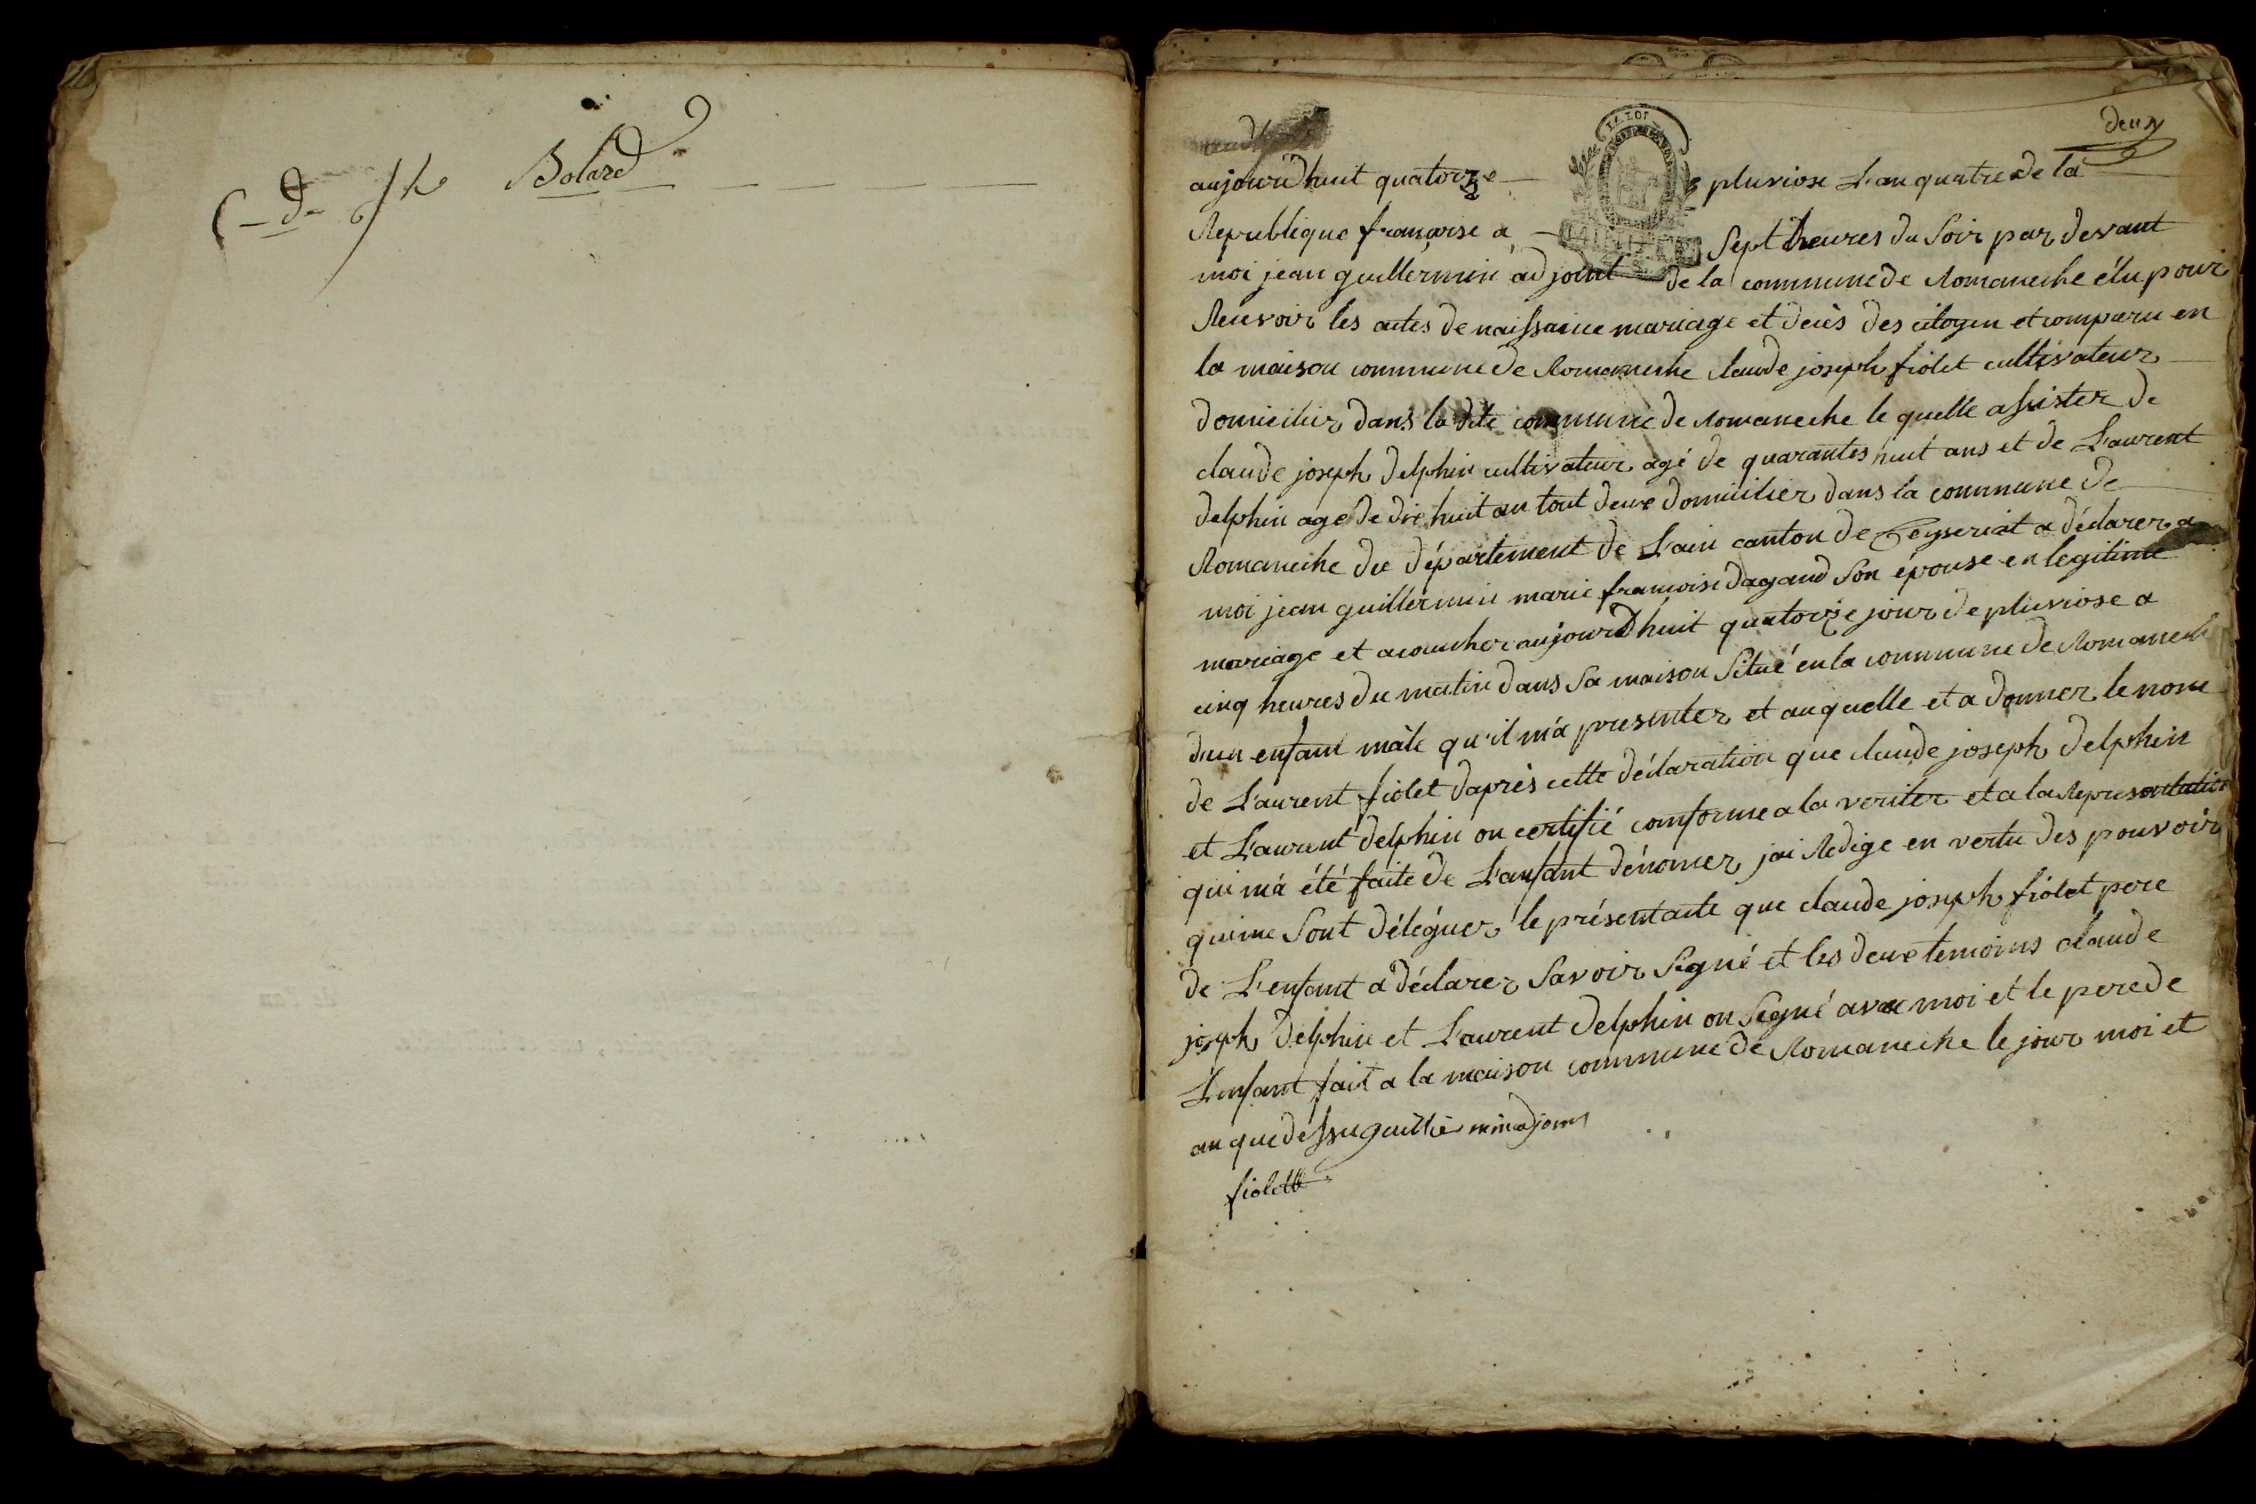 Bolard
deux
LA LOI
aujourdhuit quatorze pluviose L'an quatre de la
Republique françoise a Sept heures du Soir par devant
moi jean guillermin adjoint de la commune de Romaneche élu pour
Recevoir les actes de naissance mariage et decès des citoyen et comparu en
la maison commune de Romaneche claude joseph fiolet cultivateur
domicilier dans la dite commune de Romaneche le quelle assister de
claude joseph delphin cultivateur agé de quarantes huit ans et de Laurent
delphin age de dix huit an tout deux domicilier dans la commune de
Romaneche du département de L'ain canton de Ceyseriat a déclarer a
moi jean guillermin marie francoise dagand Son épouse en legitime
mariage et acoucher aujourdhuit quatorze jour de pluviose a
cinq heures du matin dans Sa maison Situé en la commune de Romanech
dun enfant mâle qu'il m'a presenter et auquelle et a donner le nom
de Laurent fiolet daprès cette déclaration que claude joseph delphin
et Laurent delphin on certifié comforme a la veriter et a la Representation
qui m'a été faite de L'anfant dénomer jai Redige en vertu des pouvoir
qui me Sont déléguer le présent acte que claude joseph fiolet pere
de L'enfant a déclarer Savoir Signé et les deux temoins claude
joseph delphin et Laurent delphin on Signé avec moi et le pere de
L'enfant fait a la maison commune de Romaneche le jour moi et
an que dessu guillermin adjoint
fiolett